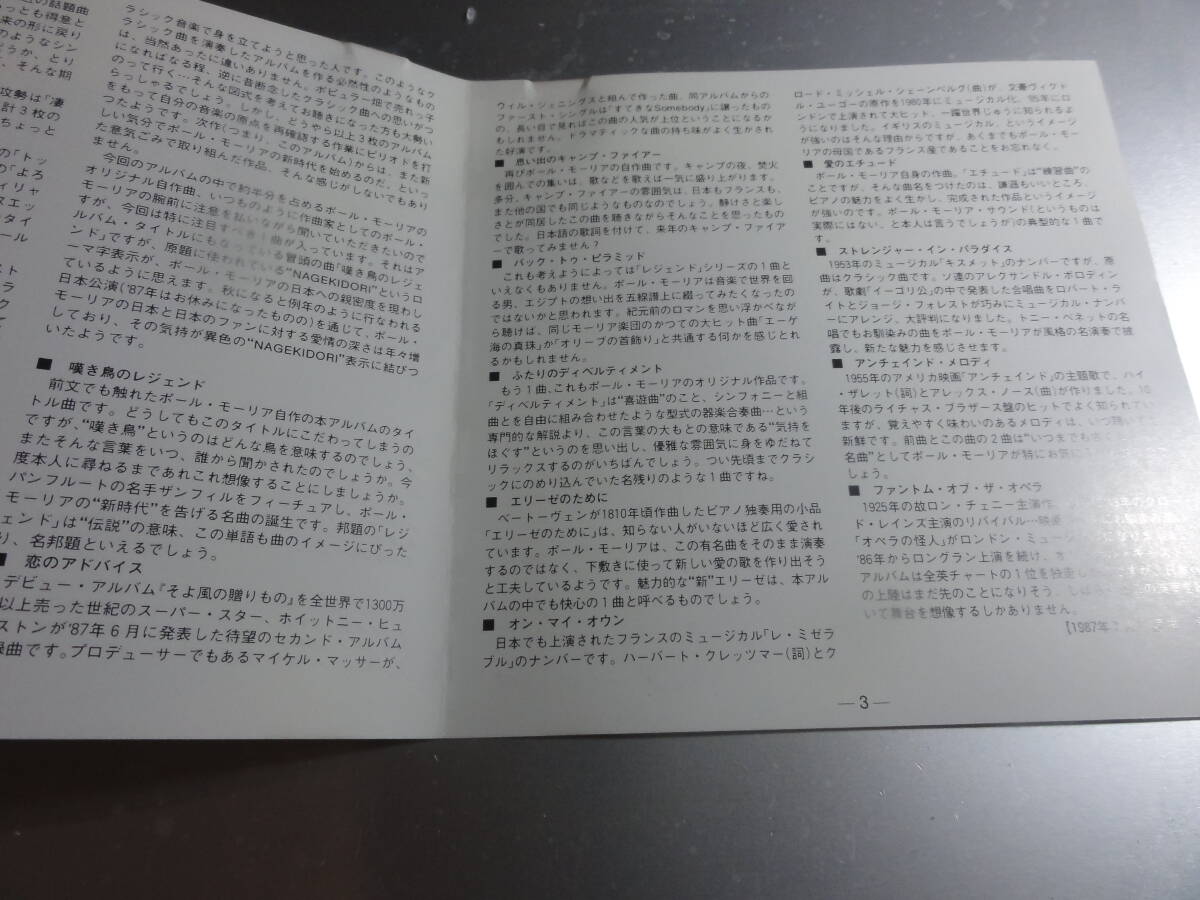 の話題曲
っとも得意と
来の形に戻り
のようなシン
どうか、とり
、そんな期
攻勢は「凄
計3枚の
ちょっと
の「トッ
の「よろ
ィリャ
スエッ
タイ
ール
スト
ラ
ク
て
ラシック音楽で身を立てようと思った人です。このようなク
ラシック曲を演奏したアルバムを作る必然性のようなもの
は、当然あったに違いありません。ポピュラー畑で売れっ子
になればなる程、逆に昔断念したクラシック曲への思いがつ
のって行く…そんな図式を考えてお聴きになった方も大勢い
らっしゃるでしょう。しかし、どうやら以上3枚のアルバム
をもって自分の音楽の原点を再確認する作業にピリオドを打
ったようです。次作(つまり、このアルバム)からは、また新
しい気分でポール・モーリアの新時代を始めるのだ、といっ
た意気ごみで取り組んだ作品、そんな感じがしないでもあり
ません。
今回のアルバムの中で約半分を占めるポール・モーリアの
オリジナル自作曲、いつものように作曲家としてのポール・
モーリアの腕前に注意を払いながら聞いていただきたいので
すが、今回は特に注目すべき1曲が入っています。それはア
ルバム・タイトルにもなっている冒頭の曲「嘆き鳥のレジェ
ンド」ですが、原題に使われている“NAGEKIDORI”というロ
ーマ字表示が、ポール・モーリアの日本への親密度を現わし
ているように思えます。秋になると例年のように行なわれる
日本公演('87年はお休みになったものの)を通じて、ポール・
モーリアの日本と日本のファンに対する愛情の深さは年々増
しており、その気持が異色の“NAGEKIDORI”表示に結びつ
いたようです。
■ 嘆き鳥のレジェンド
前文でも触れたポール・モーリア自作の本アルバムのタイ
トル曲です。どうしてもこのタイトルにこだわってしまうの
ですが、“嘆き鳥”というのはどんな鳥を意味するのでしょう、
またそんな言葉をいつ、誰から聞かされたのでしょうか。今
度本人に尋ねるまであれこれ想像することにしましょうか。
パンフルートの名手ザンフィルをフィーチュアし、ポール・
モーリアの“新時代”を告げる名曲の誕生です。邦題の「レジ
ェンド」は“伝説”の意味、この単語も曲のイメージにぴった
り、名邦題といえるでしょう。
■ 恋のアドバイス
デビュー・アルバム『そよ風の贈りもの』を全世界で1300万
以上売った世紀のスーパー・スター、ホイットニー・ヒュ
ストンが'87年6月に発表した待望のセカンド・アルバム
録曲です。プロデューサーでもあるマイケル・マッサーが、
ウィル・ジェニングスと組んで作った曲、同アルバムからの
ファースト・シングルは「すてきなSomebody」に譲ったもの
の、長い目で見ればこの曲の人気が上位ということになるか
もしれません。ドラマティックな曲の持ち味がよく生かされ
た好演です。
■ 思い出のキャンプ・ファイアー
再びポール・モーリアの自作曲です。キャンプの夜、焚火
を囲んでの集いは、歌などを歌えば一気に盛り上がります。
多分、キャンプ・ファイアーの雰囲気は、日本もフランスも、
また他の国でも同じようなものなのでしょう。静けさと楽し
さとが同居したこの曲を聴きながらそんなことを思ったもの
でした。日本語の歌詞を付けて、来年のキャンプ・ファイア
ーで歌ってみません?
■ バック・トゥ・ピラミッド
これも考えようによっては「レジェンド」シリーズの1曲と
いえなくもありません。ポール・モーリアは音楽で世界を回
る男、エジプトの想い出を五線譜上に綴ってみたくなったの
ではないかと思われます。紀元前のロマンを思い浮かべなが
ら聴けば、同じモーリア楽団のかつての大ヒット曲「エーゲ
海の真珠」か「オリーブの首飾り」と共通する何かを感じとれ
るかもしれません。
■ ふたりのディベルティメント
もう1曲、これもポール・モーリアのオリジナル作品です。
「ディベルティメント」は“喜遊曲”のこと、シンフォニーと組
曲とを自由に組み合わせたような型式の器楽合奏曲…という
専門的な解説より、この言葉の大もとの意味である“気持を
ほぐす”というのを思い出し、優雅な雰囲気に身をゆだねて
リラックスするのがいちばんでしょう。つい先頃までクラシ
ックにのめり込んでいた名残りのような1曲ですね。
■ エリーゼのために
ベートーヴェンが1810年頃作曲したピアノ独奏用の小品
「エリーゼのために」は、知らない人がいないほど広く愛され
ています。ポール・モーリアは、この有名曲をそのまま演奏
するのではなく、下敷きに使って新しい愛の歌を作り出そう
と工夫しているようです。魅力的な“新”エリーゼは、本アル
バムの中でも快心の1曲と呼べるものでしょう。
■ オン・マイ・オウン
日本でも上演されたフランスのミュージカル「レ・ミゼラ
ブル」のナンバーです。ハーバート・クレッツマー(詞)とク
ロード・ミッシェル・シェーンベルグ(曲)が、文豪ヴィクト
ル・ユーゴーの原作を1980年にミュージカル化、'85年にロ
ンドンで上演されて大ヒット、一躍世界じゅうに知られるよ
うになりました。イギリスのミュージカル、というイメージ
が強いのはそんな理由からですが、あくまでもポール・モー
リアの母国であるフランス産であることをお忘れなく。
■ 愛のエチュード
ポール・モーリア自身の作曲。「エチュード」は“練習曲”の
ことですが、そんな曲名をつけたのは、謙遜もいいところ、
ピアノの魅力をよく生かし、完成された作品というイメージ
が強いのです。ポール・モーリア・サウンド(というものは
実際にはない、と本人は言うでしょうが)の典型的な1曲で
す。
■ ストレンジャー・イン・パラダイス
1953年のミュージカル「キスメット」のナンバーですが、原
曲はクラシック曲です。ソ連のアレクサンドル・ボロディン
が、歌劇「イーゴリ公」の中で発表した合唱曲をロバート・ラ
イトとジョージ・フォレストが巧みにミュージカル・ナンバ
ーにアレンジ、大評判になりました。トニー・ベネットの名
唱でもお馴染みの曲をポール・モーリアが風格の名演奏で披
露し、新たな魅力を感じさせます。
■ アンチェインド・メロディ
1955年のアメリカ映画「アンチェインド」の主題歌で、ハイ
・ザレット(詞)とアレックス・ノース(曲)が作りました。10
年後のライチャス・ブラザース盤のヒットでよく知られてい
ますが、覚えやすく味わいのあるメロディは、いつ聴いて
新鮮です。前曲とこの曲の2曲は“いつまでも
名曲”としてポール・モーリアが特にお気に
しょう。
■ ファントム・オブ・ザ・オペラ
1925年の故ロン・チェニー主演作、
ド・レインズ主演のリバイバル…映画
「オペラの怪人」がロンドン・ミュー
'86年からロングラン上演を続け、
アルバムは全英チャートの1位を独走し
の上陸はまだ先のことになりそう、しばらく
いて舞台を想像するしかありません。
[1987年
—3—